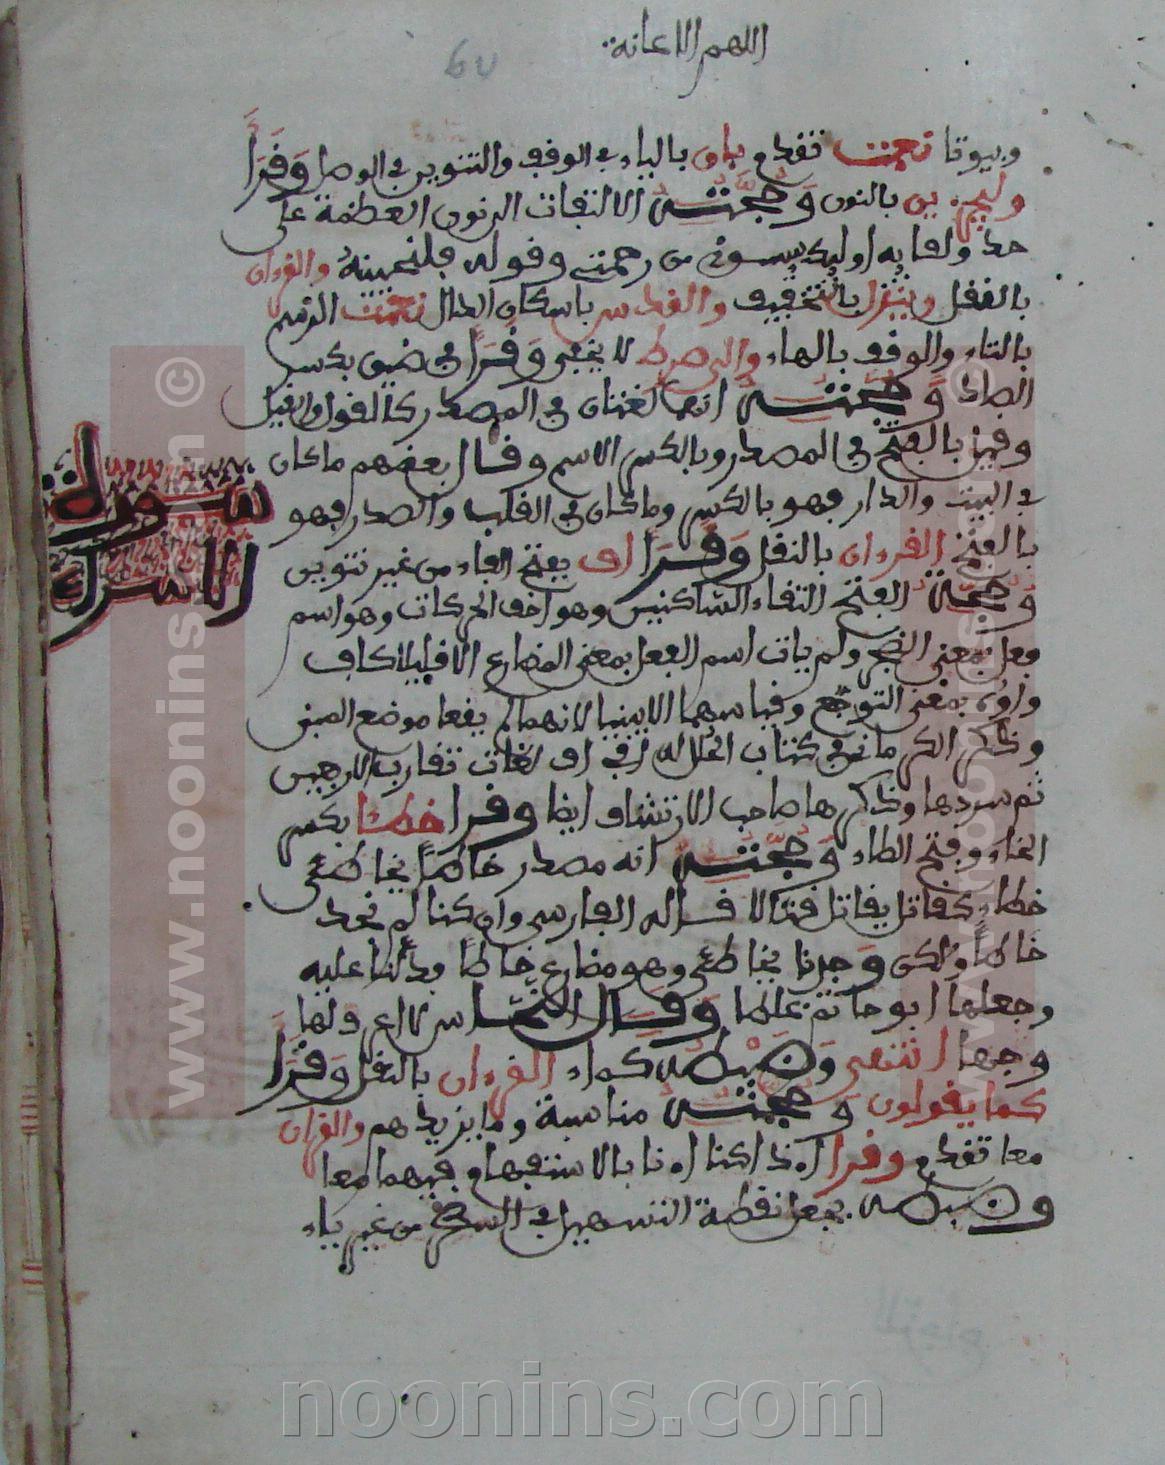 اللهم الاعانة
60
وبيوتا نعمت تقدم باق بالياء في الوقف والتنوين في الوصل وَقَرَأَ
وليجزين بالنون وَحُجَّتُهُ الالتفات الى نون العظمة على
حد ولقايه اوليك يسوا من رحمتي وقوله فلنحيينه والقرءان
بالنقل وينزل بالتخفيف والقدس باسكان الدال نعمت الرسم
بالتاء والوقف بالهاء والى صرط لا يخفى وَقَرَأَ في ضيق بكسر
الضاد وَحُجَّتُهُ انهما لغتان في المصدر كالقول والقيل
وقيل بالفتح في المصدر وبالكسر الاسم وقال بعضهم ماكان
في البيت والدار فهو بالكسر وماكان في القلب والصدر فهو
سورة
الاسراء
بالفتح القرءان بالنقل وَقَرَأَ اف بفتح الفاء من غير تنوين
وَحُجَّةُ الفتح التقاء الساكنين وهو اخف الحركات وهو اسم
فعل بمعنى اتضجر ولم يات اسم الفعل بمعنى المضارع الا قليلا كاف
واوه بمعنى اتوجع وقياسهما الا يبنيا لانهما لم يقعا موضع المبني
وذكر الكرماني في كتاب له ان في اف لغات تقارب الاربعين
ثم سردها وذكرها صاحب الارتشاف ايضا وقرا خطئا بكسر
الخاء وفتح الطاء وَحُجَّتُهُ انه مصدر خاطأ يخاطئ
خطاء كقاتل يقاتل قتالا قاله الفارسي وان كنا لم نجد
خاطأ ولكن وجدنا تخاطئ وهو مضارع خاطأ فدلنا عليه
وجعلها ابو حاتم غلطا وقال النحاس لا اعرف لها
وجها انتهى وضبطه كماء القرءان بالنقل وَقَرَأَ
كما يقولون وَحُجَّتُهُ مناسبة وما يزيدهم والقرءان
معا تقدم وقرا اءذا كنا اءنا بالاستفهام فيهما معا
وضبطه بجعل نقطة التسهيل في السطر من غير ياء
noonins.com
www.noonins.com ©
www.noonins.com ©